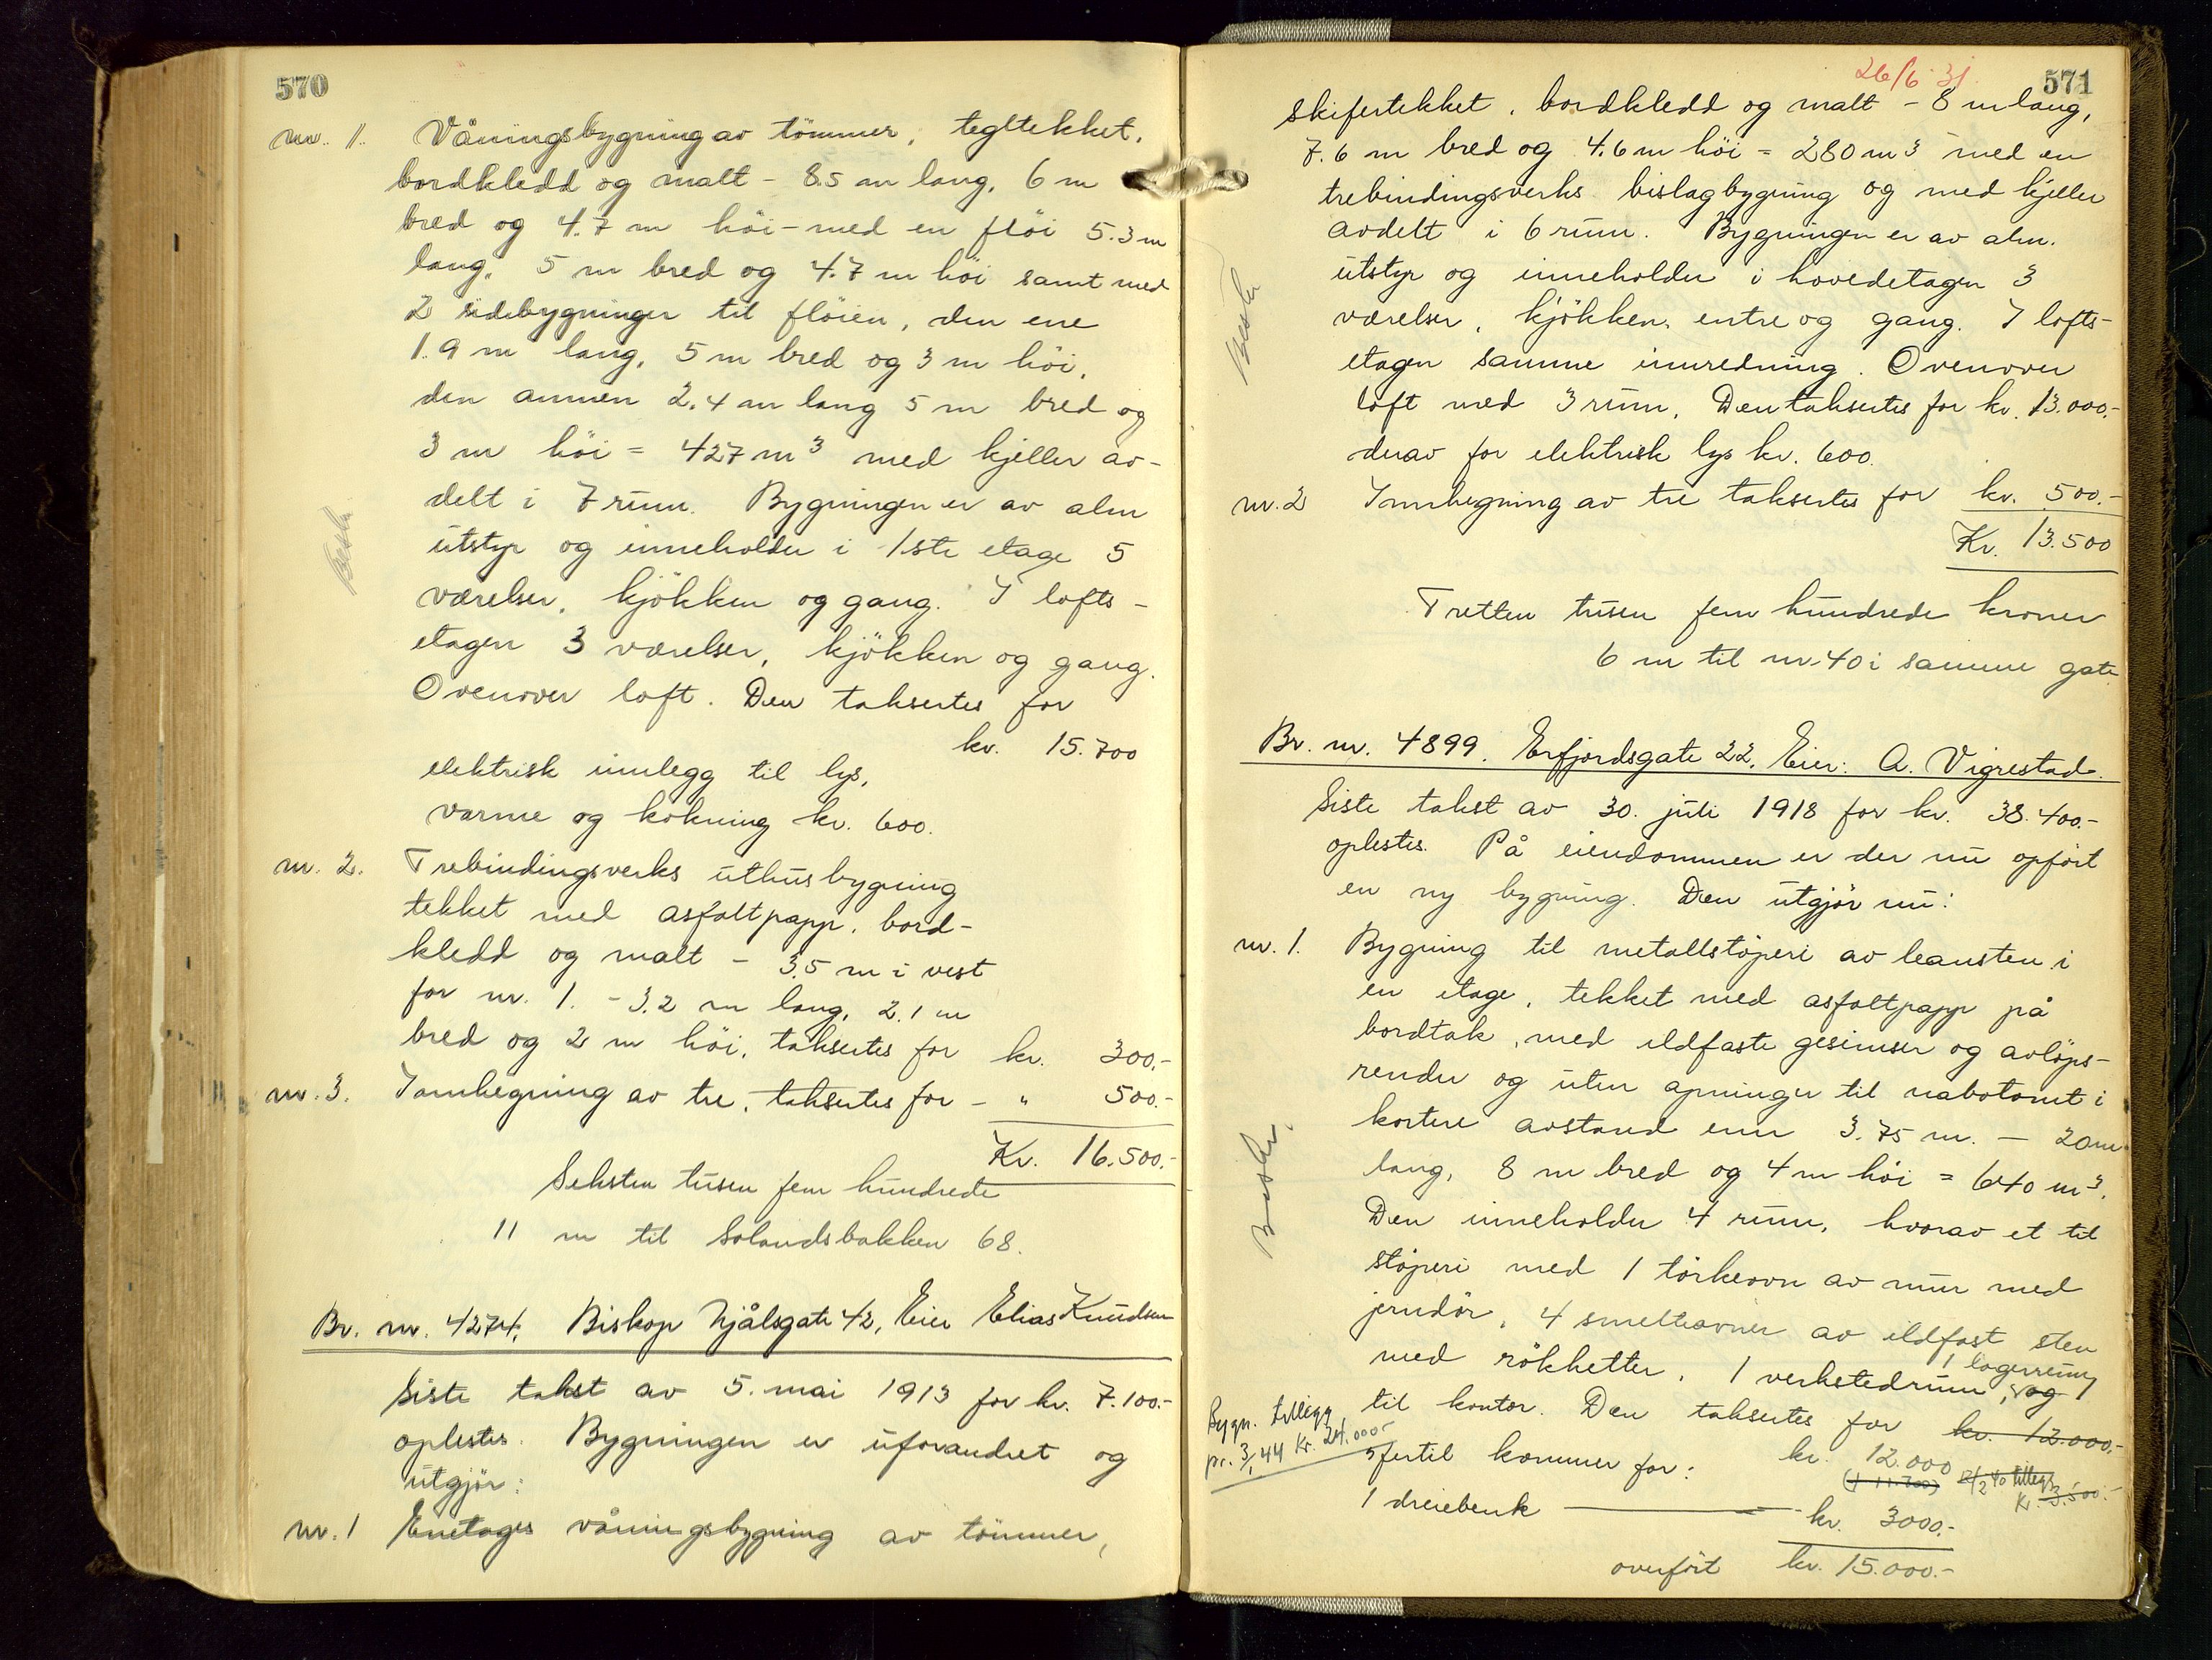 570
nr. 1. Våningsbygning av tömmer, tegltekket,
bordkledd og malt - 8.5 m lang, 6 m
bred og 4.7 m höi - med en flöi 5.3 m
lang, 5 m bred og 4.7 m höi samt med
2 sidebygninger til flöien, den ene
1.9 m lang, 5 m bred og 3 m höi,
den annen 2.4 m lang 5 m bred og
3 m höi = 427 m³ med kjeller av-
delt i 7 rum. Bygningen er av alm
utstyr og inneholder i 1ste etage 5
værelser, kjökken og gang. I lofts-
etagen 3 værelser, kjökken og gang.
Ovenover loft. Den taksertes for
kr. 15.700
elektrisk innlegg til lys,
varme og kokning kr. 600.
nr. 2. Trebindingsverks uthusbygning
tekket med asfaltpapp, bord-
kledd og malt - 3.5 m i vest
for nr. 1. - 3.2 m lang, 2.1 m
bred og 2 m höi, taksertes for kr. 300.-
nr. 3. Innhegning av tre, taksertes for - " 500.-
Kr. 16.500.-
Seksten tusen fem hundrede
11 m til Solandsbakken 68.
Br. nr. 4274, Biskop Njålsgate 42, Eier Elias Knudsen
Siste takst av 5. mai 1913 for kr. 7.100.-
oplestes. Bygningen er uforandret og
utgjör:
nr. 1 Enetages våningsbygning av tömmer,
26/6 31
571
skifertekket, bordkledd og malt - 8 m lang,
7.6 m bred og 4.6 m höi = 280 m³ med en
trebindingsverks bislagbygning og med kjeller
avdelt i 6 rum. Bygningen er av alm.
utstyr og inneholder i hovedetagen 3
værelser, kjökken, entre og gang. I lofts-
etagen samme innredning. Ovenover
loft med 3 rum. Den taksertes for kr. 13.000.-
derav for elektrisk lys kr. 600.
nr. 2 Innhegning av tre taksertes for kr. 500.-
Kr. 13.500
Tretten tusen fem hundrede kroner
6 m til nr. 40 i samme gate
Br. nr. 4899. Erfjordsgate 22, Eier: A. Vigrestad.
Siste takst av 30. juli 1918 for kr. 38.400.-
oplestes. På eiendommen er der nu opfört
en ny bygning. Den utgjör nu:
nr. 1. Bygning til metallstöperi av leansten i
en etage, tekket med asfaltpapp på
bordtak, med ildfaste gesimser og avlöps-
render og uten apninger til nabotomt i
kortere avstand enn 3.75 m. - 20 m
lang, 8 m bred og 4 m höi = 640 m³.
Den inneholder 4 rum, hvorav et til
stöperi med 1 törkeovn av mur med
jerndör, 4 smelteovner av ildfast sten
med rökhetter, 1 verkstedrum, 1 lagerrum, og 1
til kontor. Den taksertes for kr. 12.000.-
Bygn. tillegg
pr. 3/1 44 Kr. 24.000.-
Hertil kommer for: kr. 12.000
(+ 11.700) 2/2 40 tillegg
Kr. 3.500.-
1 dreiebenk kr. 3000.-
overfört kr. 15.000.-